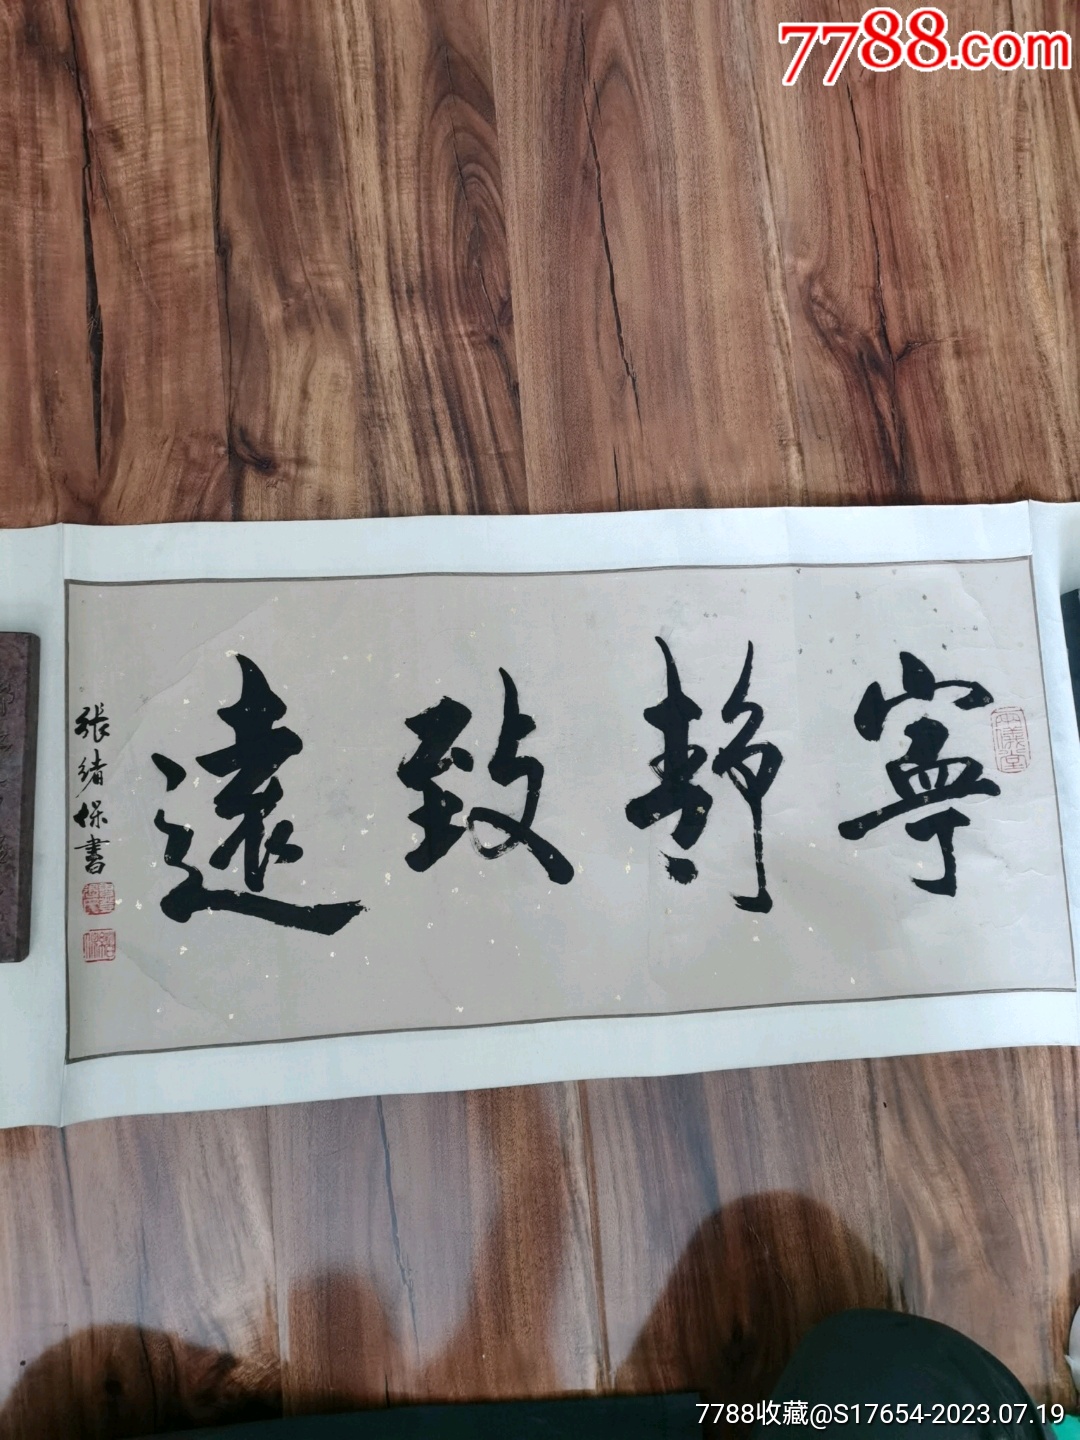 7788.com
寧靜致遠
張緒保書
7788收藏@S17654-2023.07.19